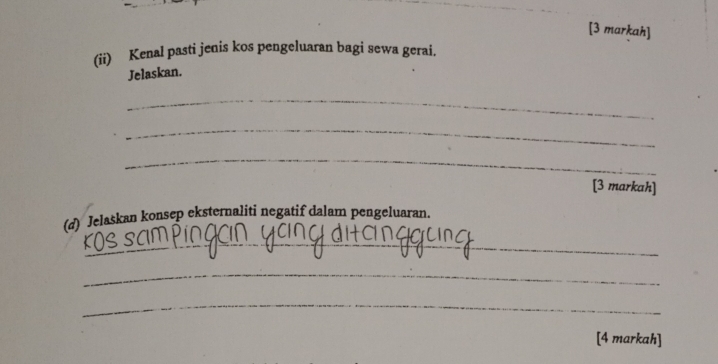 [3 markah]
(ii) Kenal pasti jenis kos pengeluaran bagi sewa gerai.
Jelaskan.
[3 markah]
(d) Jelaskan konsep eksternaliti negatif dalam pengeluaran.
Kos sampingan yang ditanggung
[4 markah]